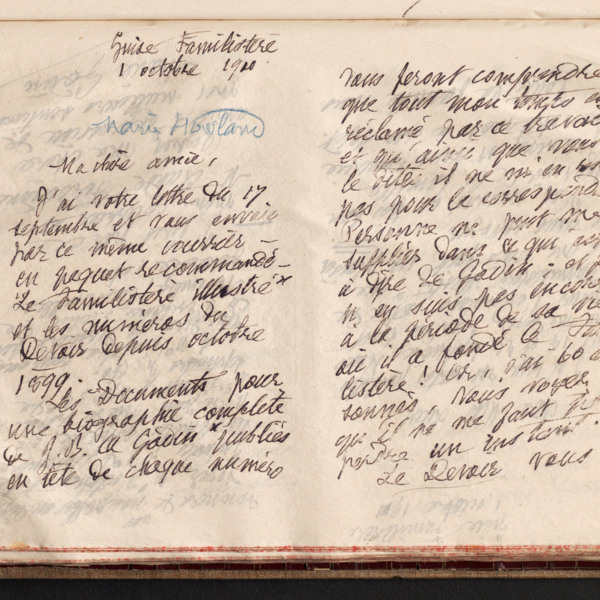 Guise Familistère
1 octobre 1900
Marie Howland
Ma chère amie,
J'ai votre lettre du 17
septembre et vous envoie
par ce même courrier —
en paquet recommandé —
Le Familistère illustré *
et les numéros du
Devoir depuis octobre
1899.
Les "Documents pour
une biographie complète
de J. B. A. Godin" * publiés
en tête de chaque numéro
vous feront comprendre
que tout mon temps e
réclamé par ce travai
et qu'ainsi que vous
le dites il ne m'en
pas pour la correspond
Personne ne peut me
suppléer dans ce qui
à dire de Godin. et
n'en suis pas encore
à la période de sa vie
où il a fondé le Fa
listère! Or, j'ai 60 a
sonnés, vous voyez
qu'il ne me faut
perdre un instant.
Le Devoir vous